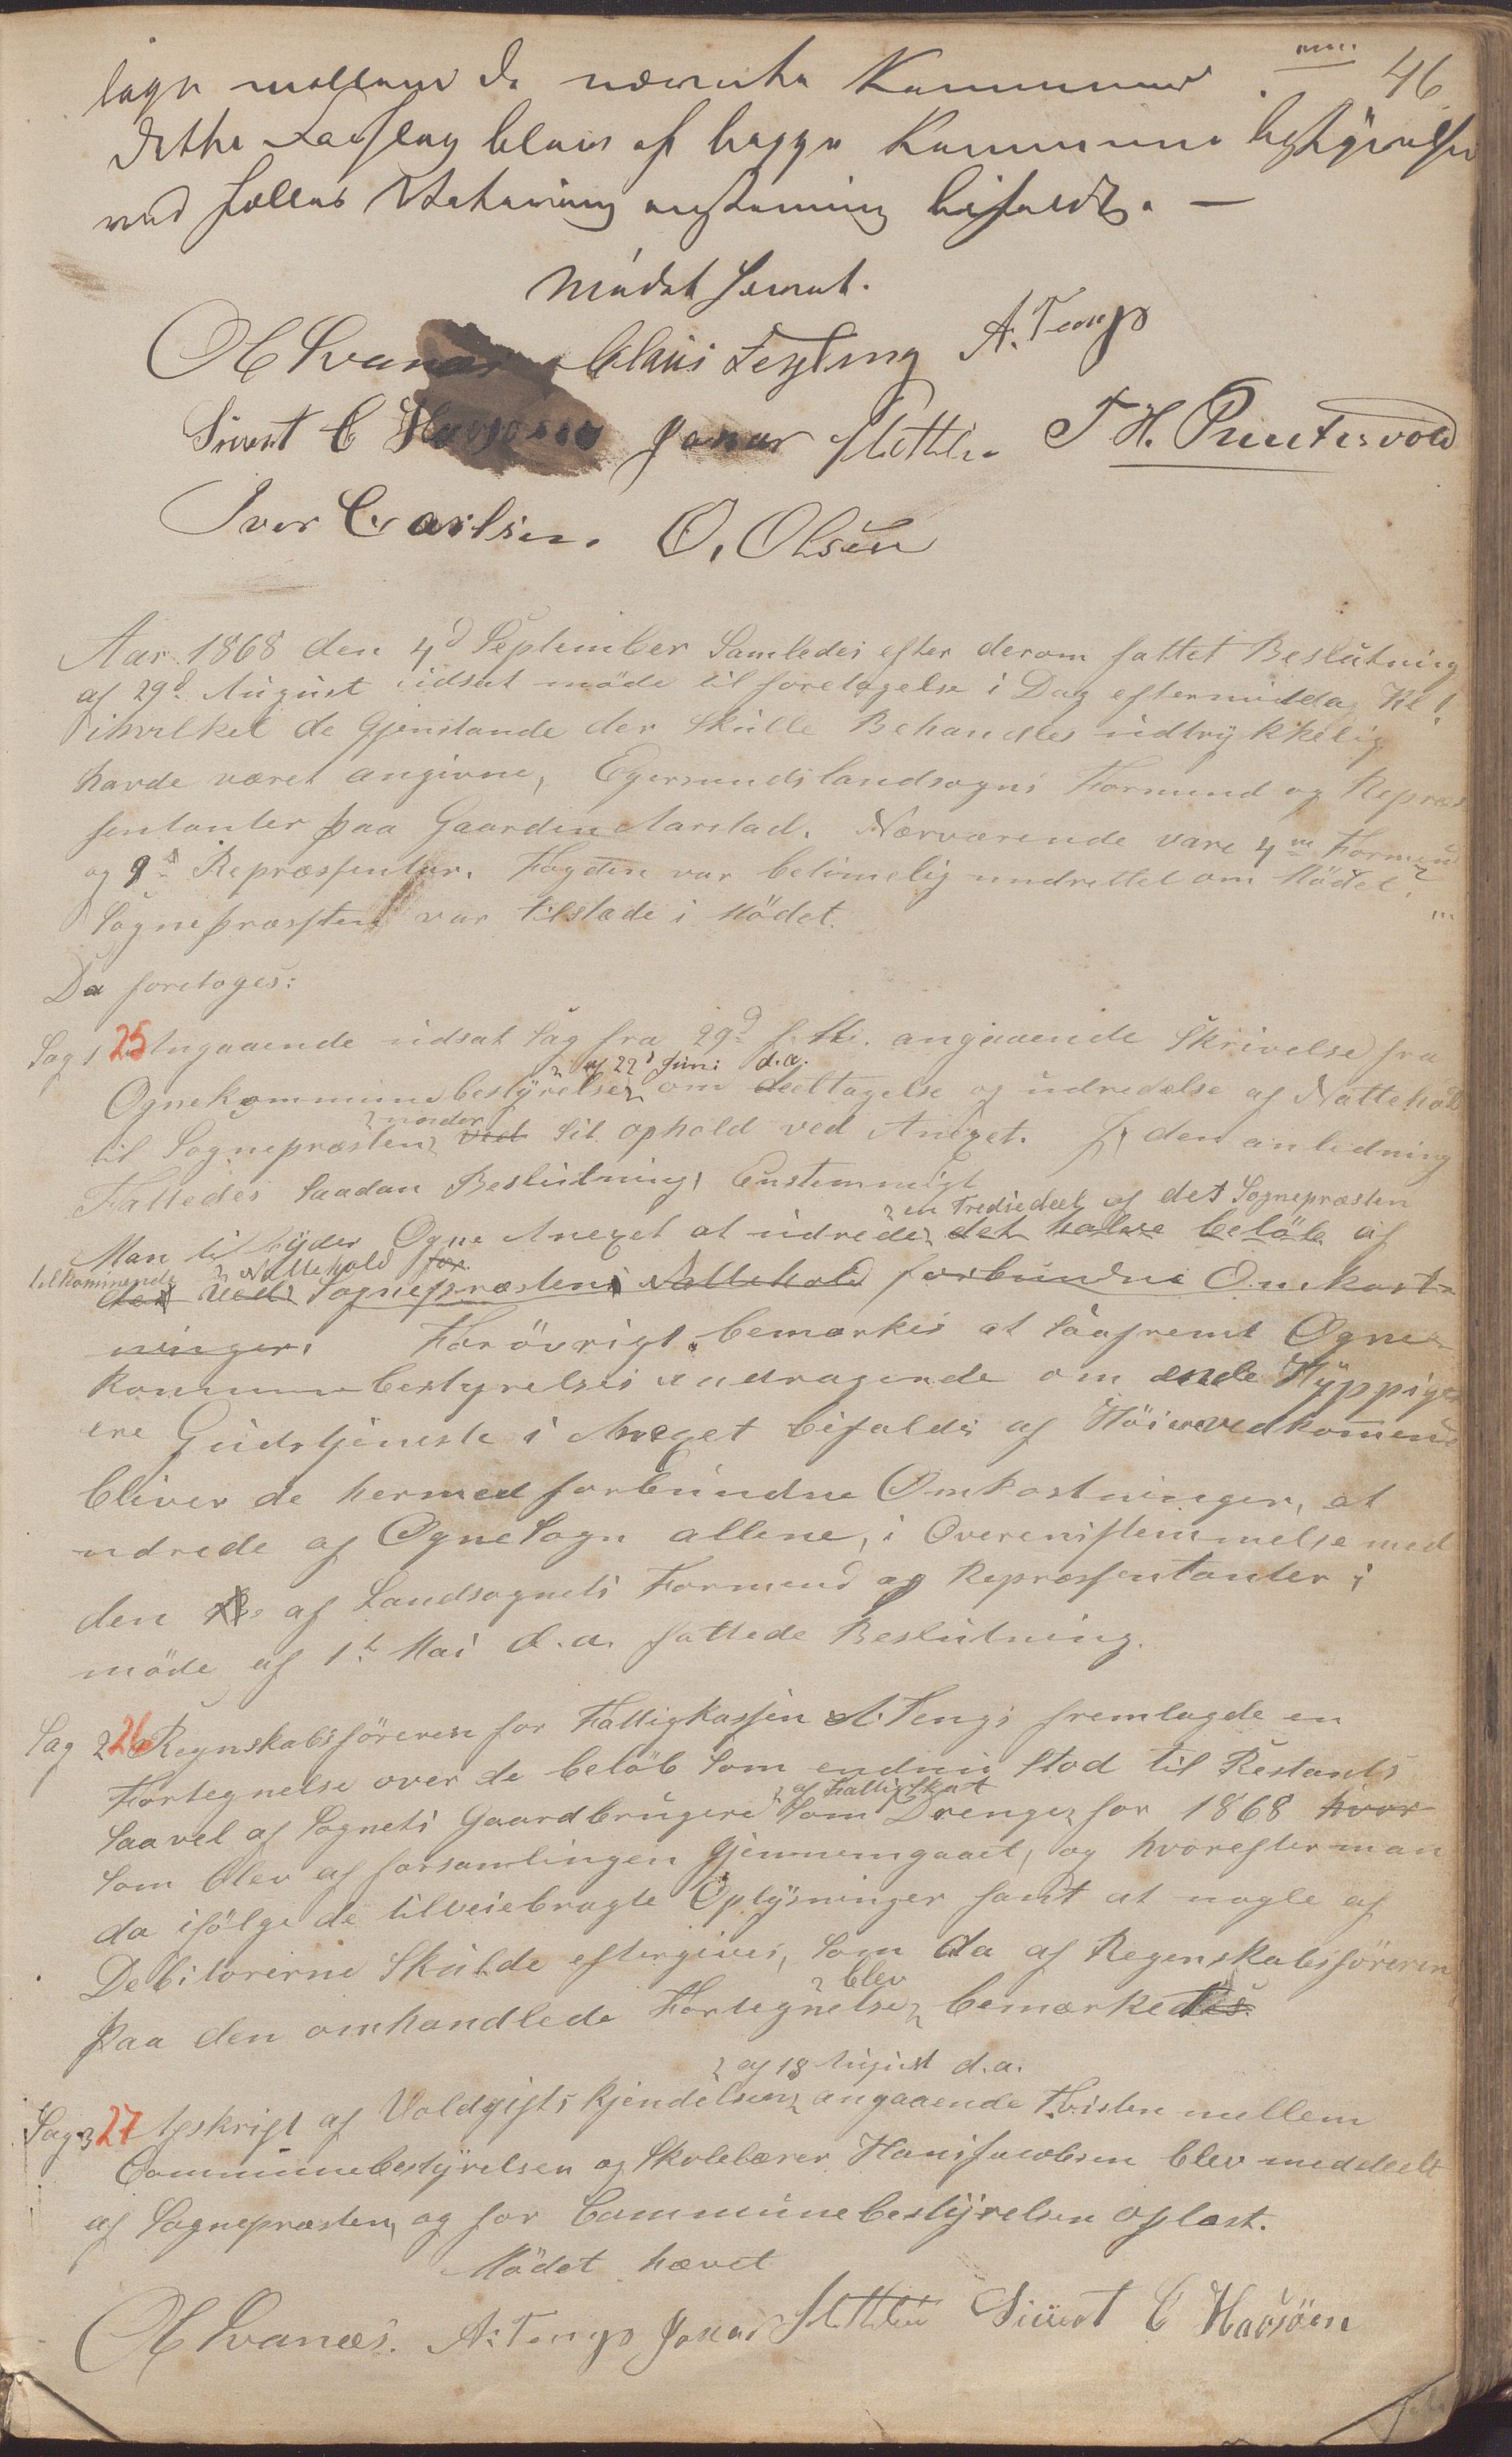 46
lagn mellem de nævnte Kommuner.
Dette Forslag blev af begge Kommunebestyrelser
ved fælles Votering enstemmig bifaldt. —
Mødet hævet.
O Svanæs Claus Feyling A. Tengs
Sivert C Havsøen Jonas Slettebø T H. Puntervold
Iver Carlsen. O. Olsen
Aar 1868 den 4d September Samledes efter derom fattet Beslutning
af 29d August udsat møde til foretagelse i Dag eftermiddag Kl
ihvilket de Gjenstande der Skulle Behandles udtrykkelig
havde været angivne, Egersunds landsogns Formend og Repræ
sentanter paa Gaarden Aarstad. Nærværende vare 4re Formend
og 9 Repræssenter. Fogden var betimelig undrettet om Mødet.
Sognepræsten var tilstæde i Mødet.
Da foretoges:
Sag 1 25 Angaaende udsat Sag fra 29d f. M. angaaende Skrivelse fra
Ognekommunebestyrelse af 22d Juni d.a. om deeltagelse og udredelse af Nattehold
til Sognepræsten under ved Sit ophold ved Anexet. I den anledning
Fattedes Saadan Beslutning, Enstemmigt
Man tilbyder Ogne Anexet at udrede en Trediedeel af det Sognepræsten det halve beløb af
tilkommende Nattehold for det ved Sognepræstens Nattehold forbundne Omkost-
ninger. Forøvrigt bemærkes at saafremt Ogne
kommunebestyrelses andragende om ende Hyppig
ere Gudstjeneste i Anexet bifaldes af Høierevedkommende
bliver de hermed forbundne Omkostninger, at
udrede af Ogne Sogn allene, i Overensstemmelse med
den af Landsognets Formend og Repræssentanter i
møde af 1t Mai d.a. fattede Beslutning.
Sag 2 26 Regnskabsføreren for Fattigkassen A. Tengs fremlagde en
Fortegnelse over de beløb Som endnu Stod til Restants
Saavel af Sognets Gaardbrugere Som Drenge af Fattigskat for 1868 hvor
Som blev af forsamlingen gjennemgaaet, og hvorefter man
da ifølge de tilveiebragte Oplysninger fant at nogle af
Debitorerne Skulde eftergives, Som da af Regenskabsføreren
paa den omhandlede Fortegnelse blev bemærket
Sag 3 27 Afskrift af Voldgifts kjendelsen af 18 August d.a. angaaende Tvisten mellem
Communebestyrelsen og Skolelærer Hans Jacobsen blev meddeelt
af Sognepræsten, og for Communebestyrelsen oplæst.
Mødet hævet
O Svanæs. A. Tengs Jonas Slettebø Sivert C Havsøen